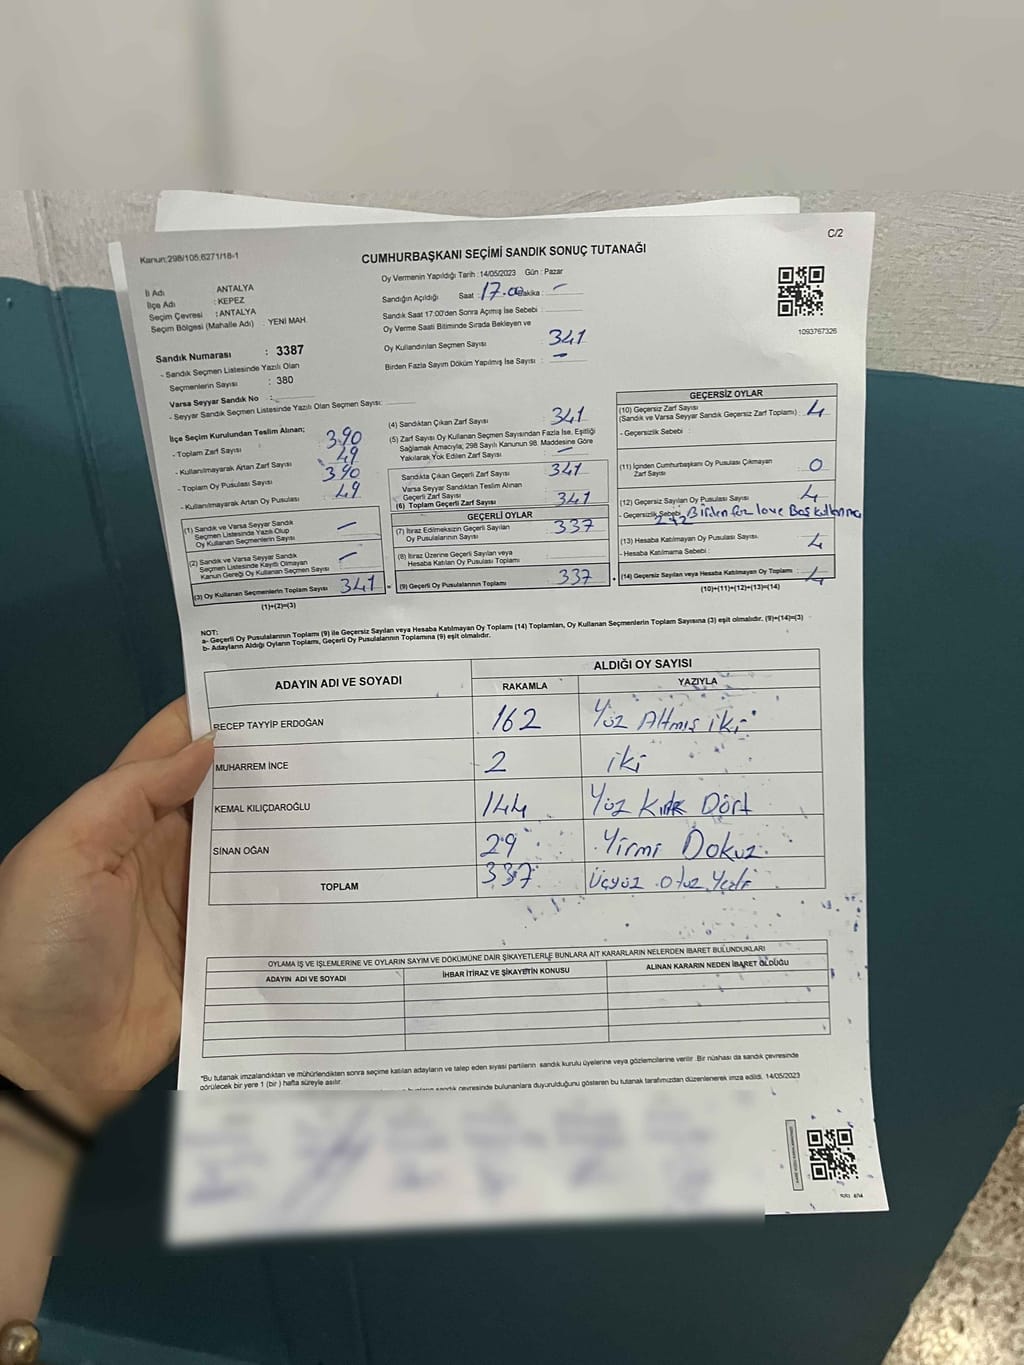 C/2
Kanun:298/105;6271/18-1
CUMHURBAŞKANI SEÇİMİ SANDIK SONUÇ TUTANAĞI
İl Adı : ANTALYA
İlçe Adı : KEPEZ
Seçim Çevresi : ANTALYA
Seçim Bölgesi (Mahalle Adı) : YENİ MAH.
Sandık Numarası : 3387
- Sandık Seçmen Listesinde Yazılı Olan
Seçmenlerin Sayısı : 380
Varsa Seyyar Sandık No :
- Seyyar Sandık Seçmen Listesinde Yazılı Olan Seçmen Sayısı:
Oy Vermenin Yapıldığı Tarih : 14/05/2023 Gün : Pazar
Sandığın Açıldığı Saat : 17.00 Dakika : -
Sandık Saat 17:00'den Sonra Açılmış İse Sebebi :
Oy Verme Saati Bitiminde Sırada Bekleyen ve
Oy Kullandırılan Seçmen Sayısı 341
Birden Fazla Sayım Döküm Yapılmış İse Sayısı : -
1093767326
İlçe Seçim Kurulundan Teslim Alınan;
- Toplam Zarf Sayısı 390
- Kullanılmayarak Artan Zarf Sayısı 49
- Toplam Oy Pusulası Sayısı 390
- Kullanılmayarak Artan Oy Pusulası 49
(1) Sandık ve Varsa Seyyar Sandık
Seçmen Listesinde Yazılı Olup
Oy Kullanan Seçmenlerin Sayısı -
(2) Sandık ve Varsa Seyyar Sandık
Seçmen Listesinde Kayıtlı Olmayan
Kanun Gereği Oy Kullanan Seçmen Sayısı -
(3) Oy Kullanan Seçmenlerin Toplam Sayısı 341
(1)+(2)=(3)
(4) Sandıktan Çıkan Zarf Sayısı : 341
(5) Zarf Sayısı Oy Kullanan Seçmen Sayısından Fazla İse, Eşitliği
Sağlamak Amacıyla; 298 Sayılı Kanunun 98. Maddesine Göre
Yakılarak Yok Edilen Zarf Sayısı : -
Sandıkta Çıkan Geçerli Zarf Sayısı 341
Varsa Seyyar Sandıktan Teslim Alınan
Geçerli Zarf Sayısı
(6) Toplam Geçerli Zarf Sayısı 341
GEÇERLİ OYLAR
(7) İtiraz Edilmeksizin Geçerli Sayılan
Oy Pusulalarının Sayısı 337
(8) İtiraz Üzerine Geçerli Sayılan veya
Hesaba Katılan Oy Pusulası Toplamı
(9) Geçerli Oy Pusulalarının Toplamı 337
GEÇERSİZ OYLAR
(10) Geçersiz Zarf Sayısı
(Sandık ve Varsa Seyyar Sandık Geçersiz Zarf Toplamı) : 4
- Geçersizlik Sebebi :
(11) İçinden Cumhurbaşkanı Oy Pusulası Çıkmayan
Zarf Sayısı 0
(12) Geçersiz Sayılan Oy Pusulası Sayısı 4
- Geçersizlik Sebebi : Birden
(13) Hesaba Katılmayan Oy Pusulası Sayısı. 4
- Hesaba Katılmama Sebebi :
(14) Geçersiz Sayılan veya Hesaba Katılmayan Oy Toplamı : 4
(10)+(11)+(12)+(13)=(14)
NOT:
a- Geçerli Oy Pusulalarının Toplamı (9) ile Geçersiz Sayılan veya Hesaba Katılmayan Oy Toplamı (14) Toplamları, Oy Kullanan Seçmenlerin Toplam Sayısına (3) eşit olmalıdır. (9)+(14)=(3)
b- Adayların Aldığı Oyların Toplamı, Geçerli Oy Pusulalarının Toplamına (9) eşit olmalıdır.
ADAYIN ADI VE SOYADI ALDIĞI OY SAYISI
RAKAMLA YAZIYLA
RECEP TAYYİP ERDOĞAN 162 Yüz Altmış iki
MUHARREM İNCE 2 iki
KEMAL KILIÇDAROĞLU 144 Yüz Kırk Dört
SİNAN OĞAN 29 Yirmi Dokuz
TOPLAM 337 Üçyüz Otuz Yedi
OYLAMA İŞ VE İŞLEMLERİNE VE OYLARIN SAYIM VE DÖKÜMÜNE DAİR ŞİKAYETLERLE BUNLARA AİT KARARLARIN NELERDEN İBARET BULUNDUKLARI
ADAYIN ADI VE SOYADI İHBAR İTİRAZ VE ŞİKAYETİN KONUSU ALINAN KARARIN NEDEN İBARET OLDUĞU
*Bu tutanak imzalandıktan ve mühürlendikten sonra seçime katılan adayların ve talep eden siyasi partilerin sandık kurulu üyelerine veya gözlemcilerine verilir. Bir nüshası da sandık çevresinde
görülecek bir yere 1 (bir) hafta süreyle asılır.
sandık çevresinde bulunanlara duyurulduğunu gösteren bu tutanak tarafımızdan düzenlenerek imza edildi. 14/05/2023